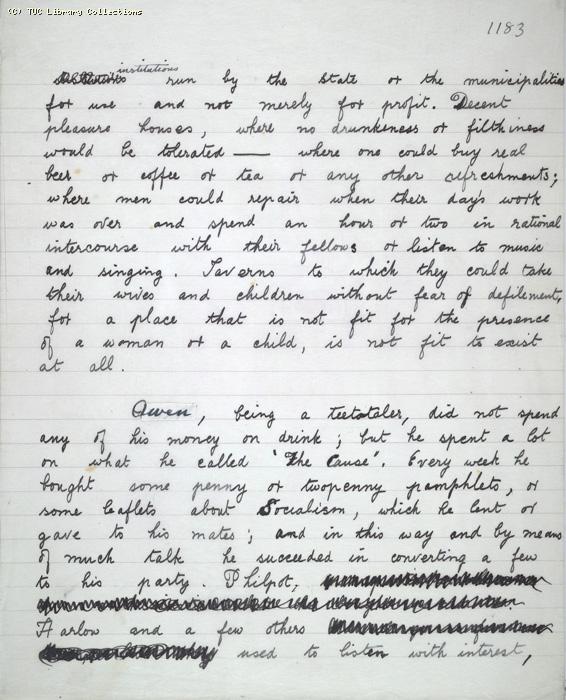 (C) TUC Library Collections
1183
institutions
run by the State or the municipalities
for use and not merely for profit. Decent
pleasure houses, where no drunkeness or filthiness
would be tolerated — where one could buy real
beer or coffee or tea or any other refreshments;
where men could repair when their day's work
was over and spend an hour or two in rational
intercourse with their fellows or listen to music
and singing. Taverns to which they could take
their wives and children without fear of defilement,
for a place that is not fit for the presence
of a woman or a child, is not fit to exist
at all.
Owen, being a teetotaler, did not spend
any of his money on drink; but he spent a lot
on what he called 'The Cause'. Every week he
bought some penny or twopenny pamphlets, or
some leaflets about Socialism, which he lent or
gave to his mates; and in this way and by means
of much talk he succeeded in converting a few
to his party. Philpot,
Harlow and a few others
used to listen with interest,